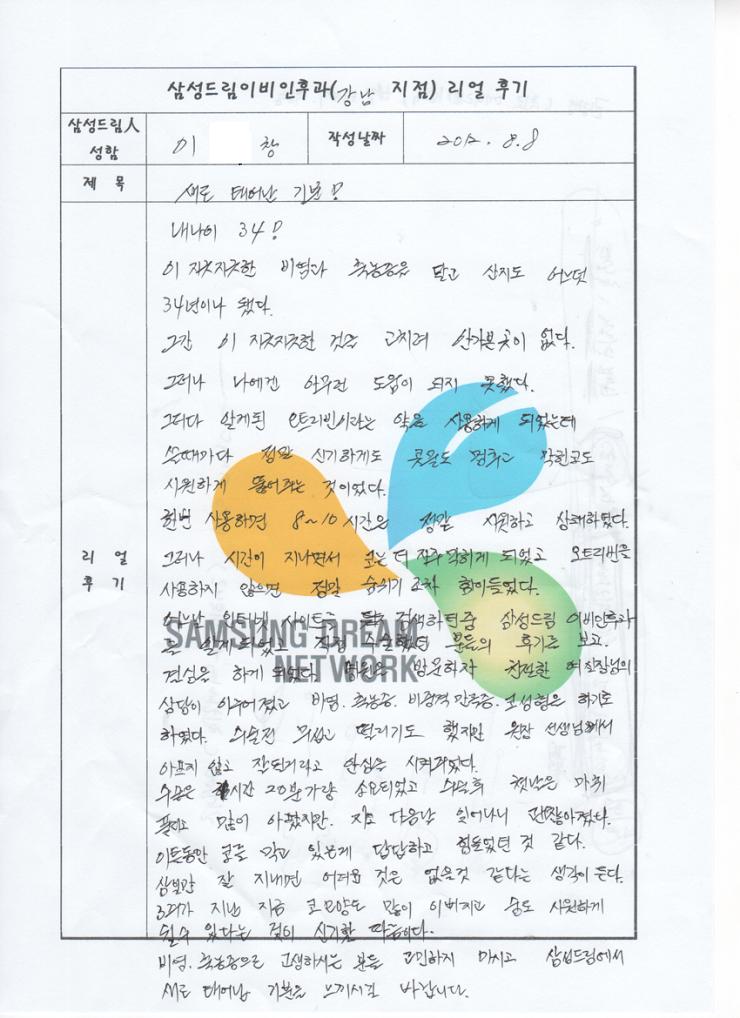 삼성드림이비인후과(강남 지점) 리얼 후기
삼성드림人 성함
이 창
작성날짜
2012. 8. 8
제 목
새로 태어난 기분!
리 얼 후 기
내나이 34!
이 지긋지긋한 비염과 축농증을 달고 산지도 어느덧
34년이나 됐다.
그간 이 지긋지긋한 것을 고치려 안가본곳이 없다.
그러나 나에겐 아무런 도움이 되지 못했다.
그러다 알게된 오트리빈이라는 약을 사용하게 되었는데
쓸때마다 정말 신기하게도 콧물도 멈추고 막힌코도
시원하게 뚫어지는 것이었다.
한번 사용하면 8~10시간은 정말 시원하고 상쾌하였다.
그러나 시간이 지나면서 코는 더 자주 막히게 되었고 오트리빈을
사용하지 않으면 정말 숨쉬기 조차 힘이들었다.
인터넷 사이트를 검색하던중 삼성드림 이비인후과
를 알게되었고 직접 수술했던 분들의 후기를 보고
결심을 하게 되었다. 병원을 방문하자 친절한 여실장님의
상담이 이루어졌고 비염. 축농증. 비중격 만곡증. 코성형을 하기로
하였다. 수술전 무섭고 떨리기도 했지만 원장 선생님께서
아프지 않고 잘될거라고 안심을 시켜주었다.
수술은 시간 20분가량 소요되었고 수술후 첫날은 마취
풀리고 많이 아팠지만. 자고 다음날 일어나니 괜찮아졌다.
이틀동안 코를 막고 있는게 답답하고 힘들었던 것 같다.
삼일간 잘 지내면 어려울 것은 없을것 같다는 생각이 든다.
3주가 지난 지금 코모양도 많이 이뻐지고 숨도 시원하게
쉴수 있다는 것이 신기할 따름이다.
비염. 축농증으로 고생하시는 분들 고민하지 마시고 삼성드림에서
새로 태어남 기분을 느끼시길 바랍니다.
SAMSUNG DREAM
NETWORK